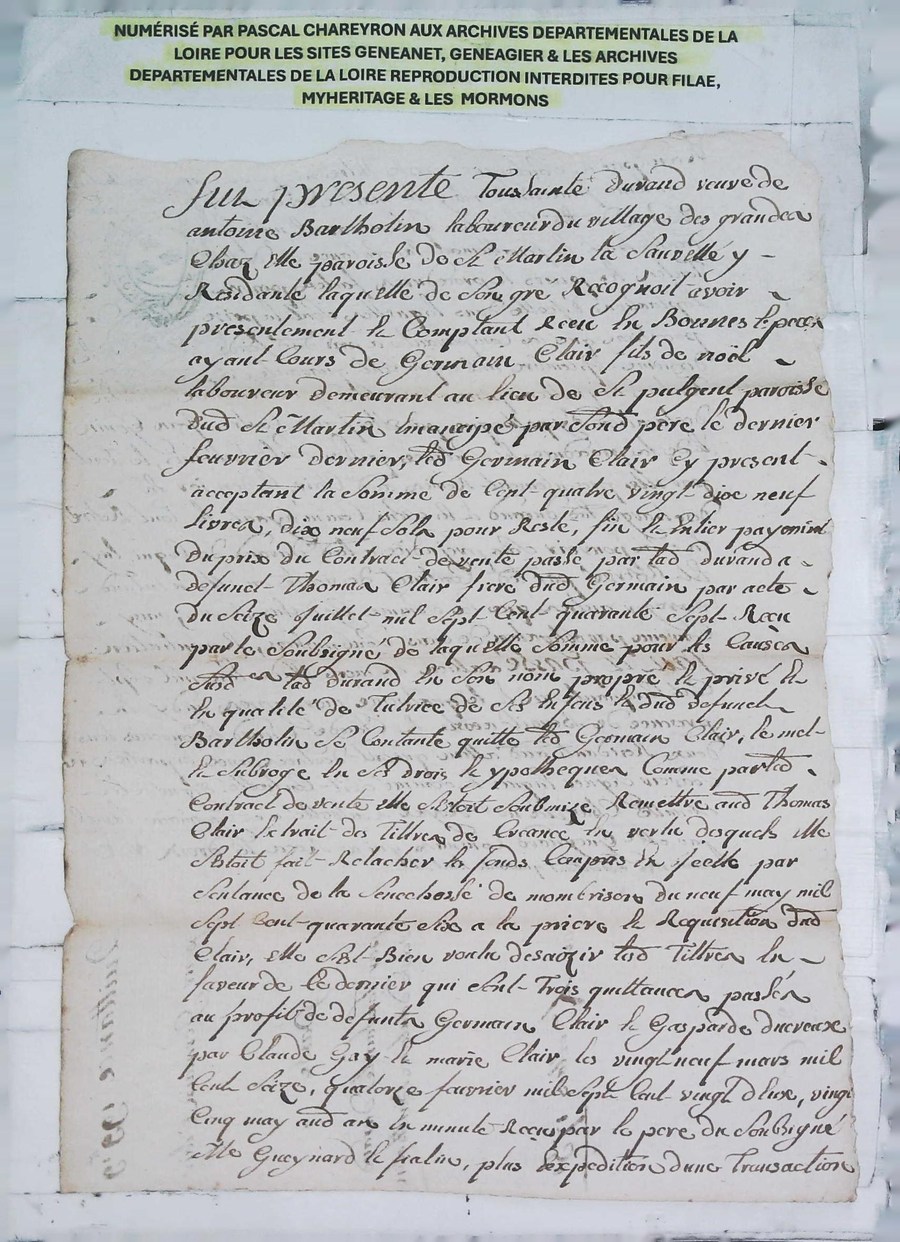 NUMÉRISÉ PAR PASCAL CHAREYRON AUX ARCHIVES DEPARTEMENTALES DE LA
LOIRE POUR LES SITES GENEANET, GENEAGIER & LES ARCHIVES
DEPARTEMENTALES DE LA LOIRE REPRODUCTION INTERDITES POUR FILAE,
MYHERITAGE & LES MORMONS
fut presente Toussainte Durand veuve de
antoine Bartholin laboureur du village des grandes
Chaz elle paroisse de St Martin la Sauveté y
Residante laquelle de son gre Recognoit avoir
presentement & Comptant Receu En Bonnes Especes
ayant Cours de Germain Clair fils de noël
laboureur demeurant au lieu de St pulgent paroisse
dud St Martin Emancipé par Sond pere le dernier
feuvrier dernier, led Germain Clair Cy present
acceptant la Somme de Cent quatre vingt dixe neuf
livres, dix neuf Sols pour Reste, fin & Entier payement
Du prix du Contract de vente passé par lad durand a
defunct Thomas Clair frere dud Germain par acte
Du Seize Juillet mil Sept Cent quarante Sept Receu
par le Soubsigné, de laquelle Somme pour les Causes
Susd lad durand En Son nom propre & privé &
En qualité de Tutrice de Ses Enfans & dud defunct
Bartholin Se Contante quitte led Germain Clair, le met
& Subroge En Ses drois & ypotheques Comme par led
Contract de vente elle Sestoit Soubmize Remettre aud Thomas
Clair Extrait des Tiltres de Creance En vertu desquels Elle
Sestoit fait Relacher les fonds Compris En Icelle par
Sentance de la Senechossé de mombrison du neuf may mil
Sept Cent quarante Six a la priere & Requisition dud
Clair, elle Est Bien voulu desaizir lesd Tiltres En
faveur de Ce dernier qui Sont Trois quittances passés
au profit de defunts Germain Clair & Gasparde ducreux
par Claude Gay & marie Clair les vingt neuf mars mil
Cent Seize, quatorze feuvrier mil Sept Cent vingt deux, vingt
Cinq may aud an En minute Receu par le pere du Soubsigné
Me Gueynard & pralin, plus Expedition dune Transaction